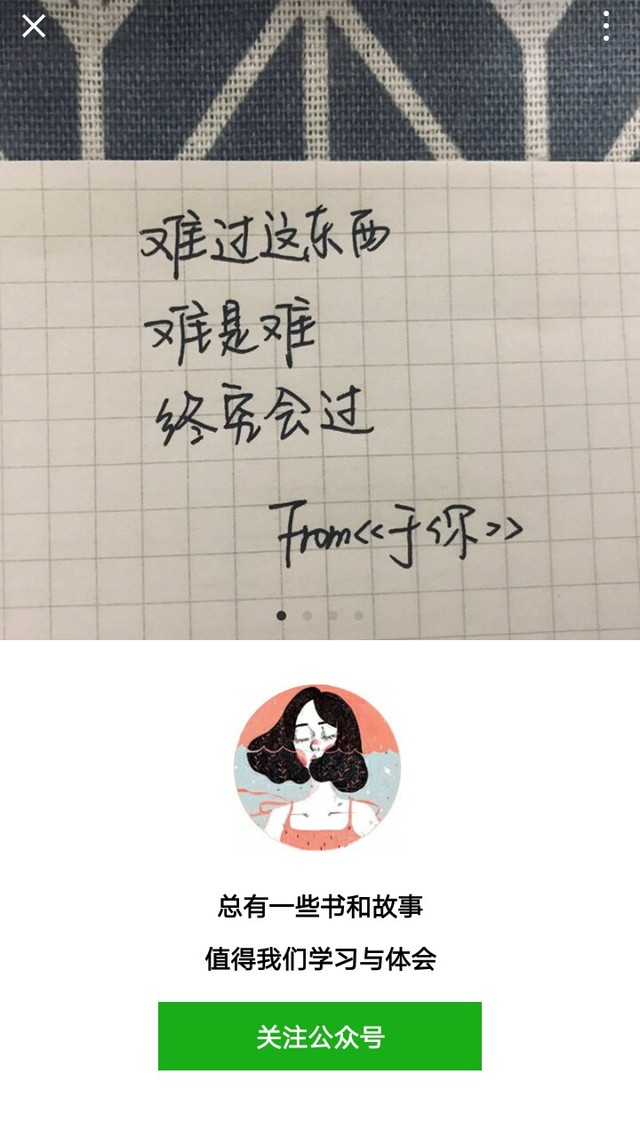 难过这东西
难是难
终究会过
From<<于你>>
总有一些书和故事
值得我们学习与体会
关注公众号